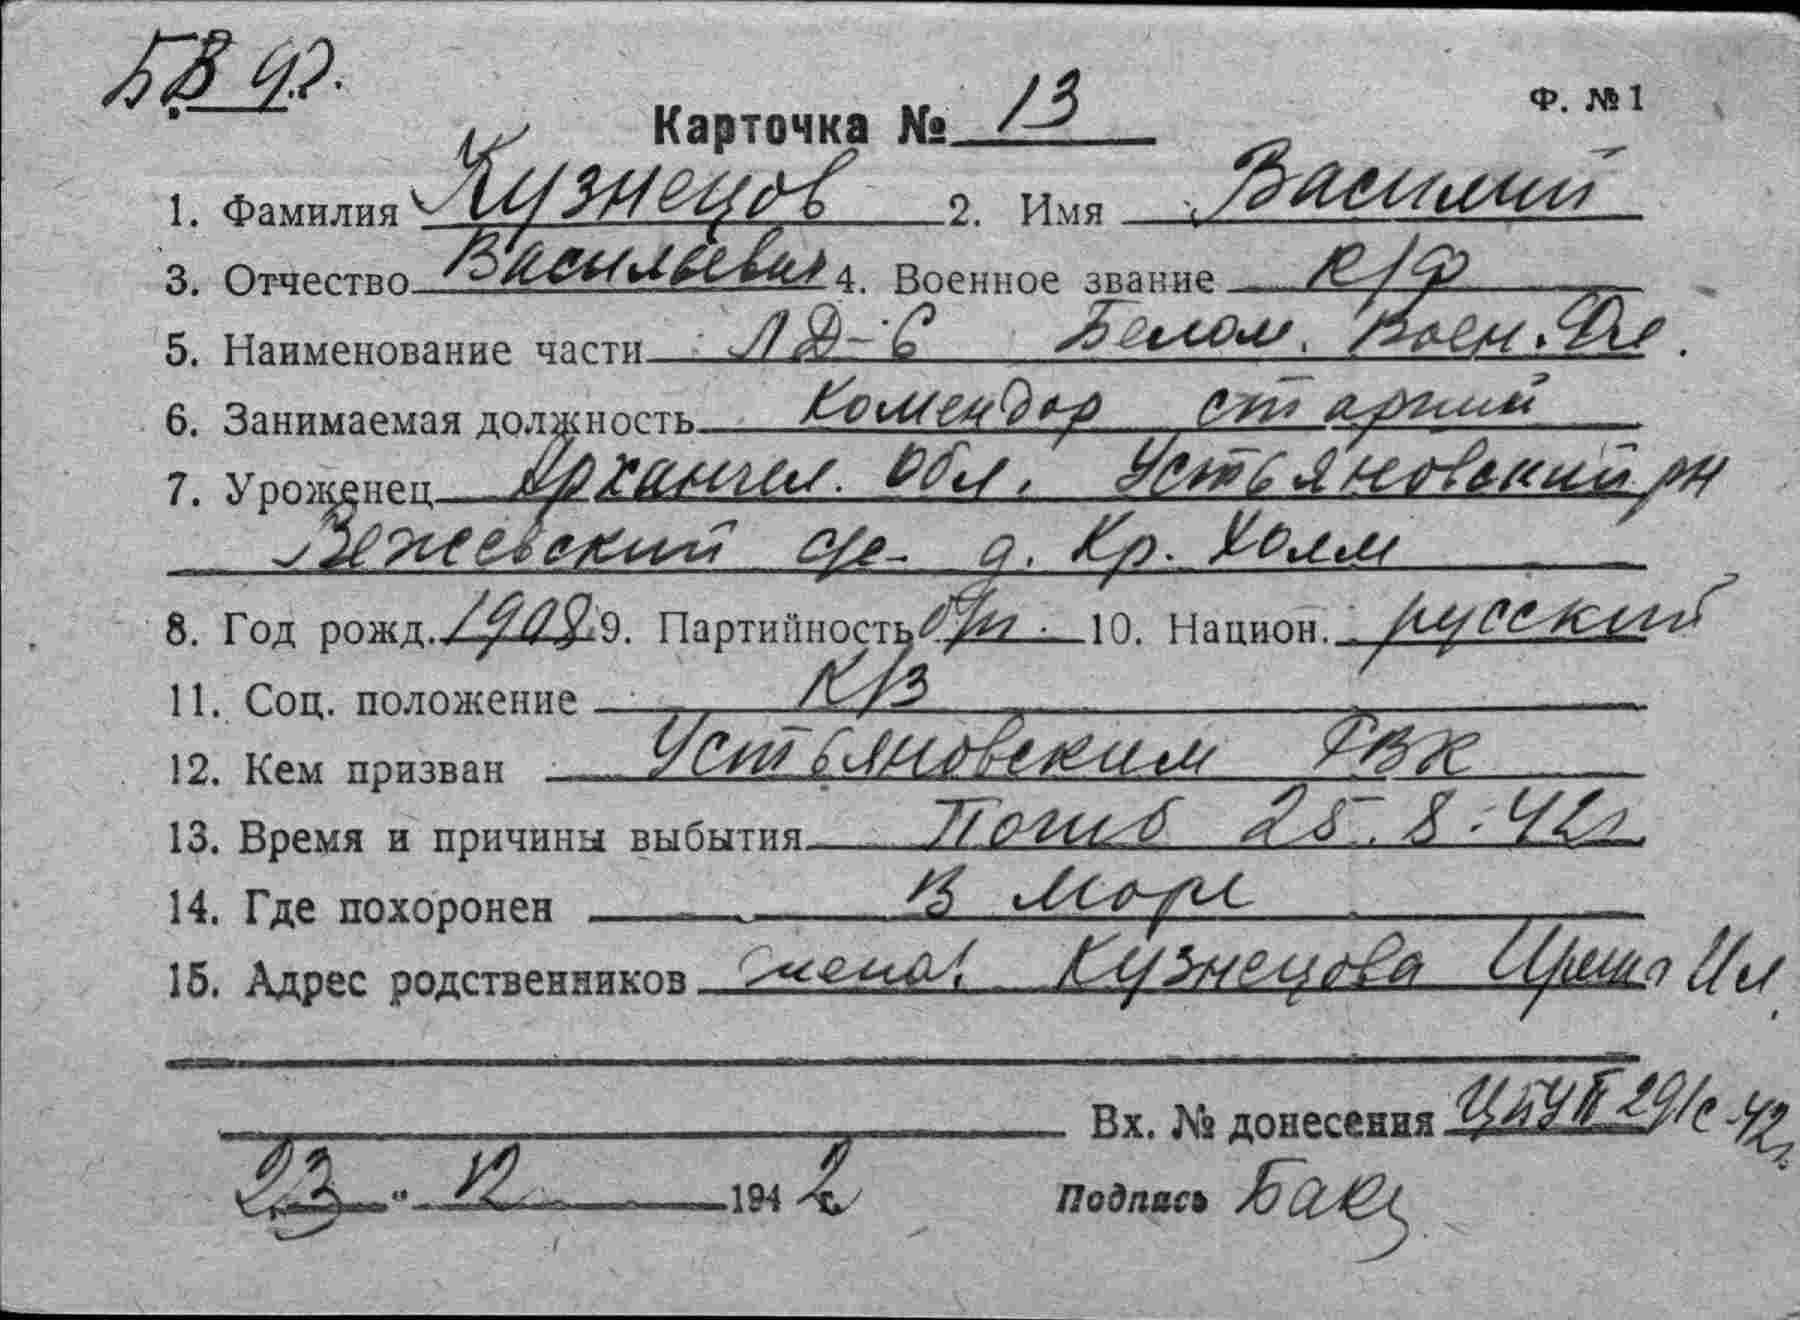 Б.В.Ф.
Ф. №1
Карточка № 13
1. Фамилия Кузнецов 2. Имя Василий
3. Отчество Васильевич 4. Военное звание к/ф
5. Наименование части ЛД-6 Белом. Воен. Фл.
6. Занимаемая должность Комендор старший
7. Уроженец Архангел. обл. Устьяновский рн
Вежевский с/с д. Кр. Холм
8. Год рожд. 1908 9. Партийность б/п. 10. Национ. русский
11. Соц. положение К/з
12. Кем призван Устьяновским РВК
13. Время и причины выбытия Погиб 25.8.42г.
14. Где похоронен В море
15. Адрес родственников жена: Кузнецова Ил.
Вх. № донесения 291с-42г.
23 " 12 1942 г. Подпись